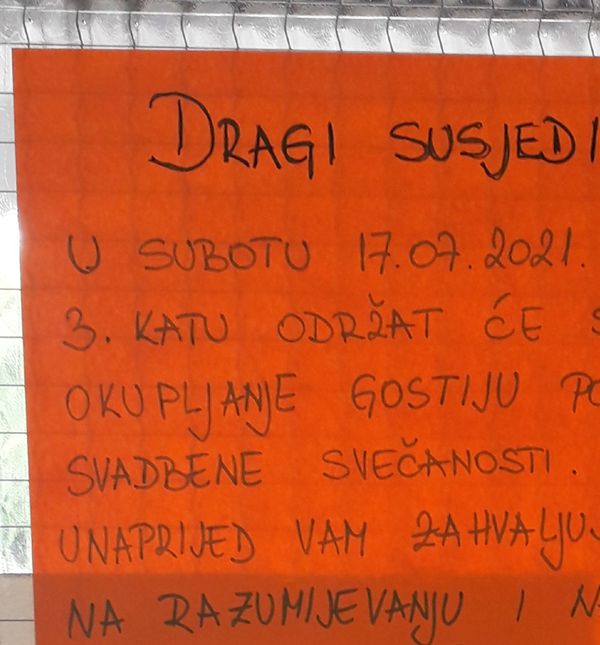 DRAGI SUSJEDI
U SUBOTU 17.07.2021.
3. KATU ODRŽAT ĆE
OKUPLJANJE GOSTIJU
SVADBENE SVEČANOSTI.
UNAPRIJED VAM
NA RAZUMIJEVANJU I